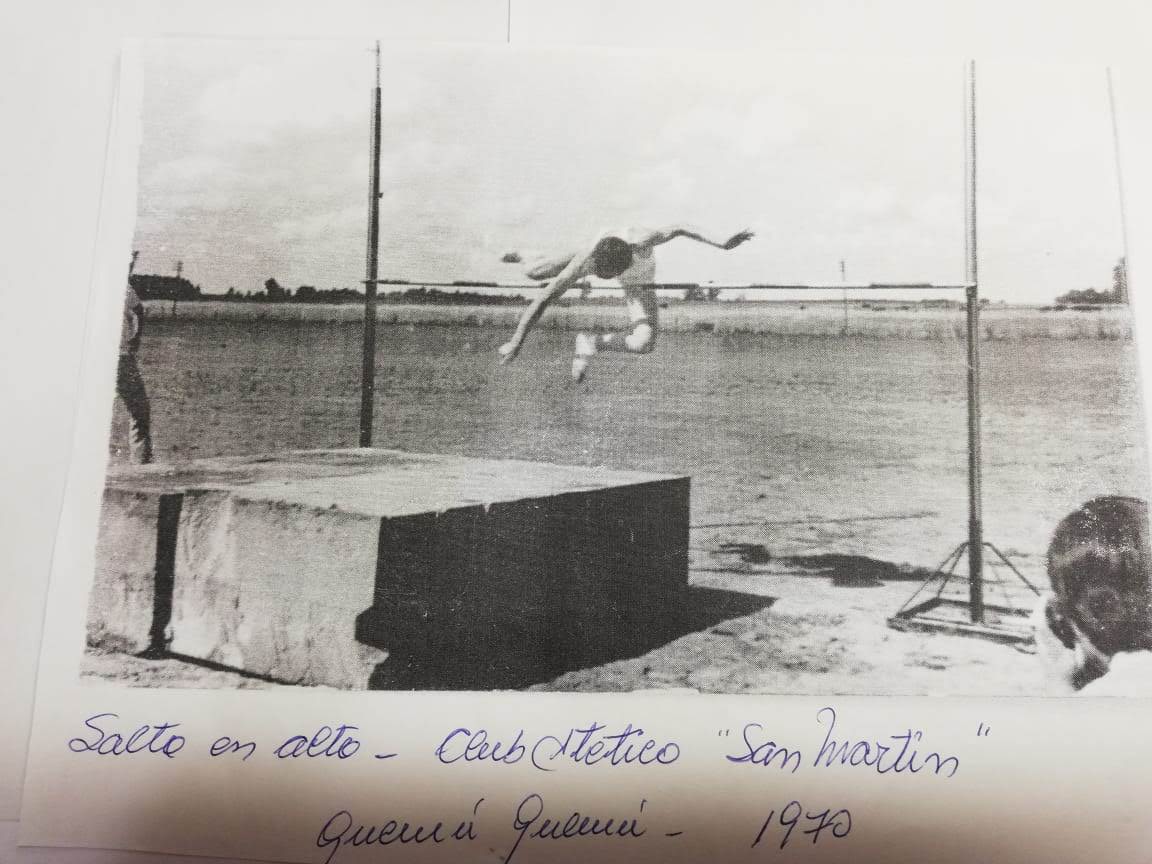 Salto en alto - Club Atletico "San Martin"
Quemú Quemú - 1970